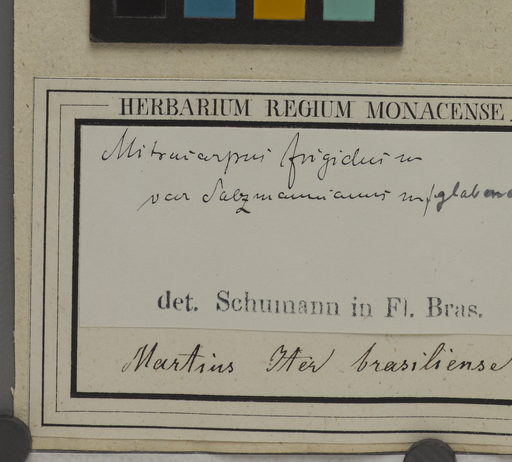 HERBARIUM REGIUM MONACENSE
Mitracarpus frigidus m
var Salzmannianus m f glabra
det. Schumann in Fl. Bras.
Martius Iter brasiliense